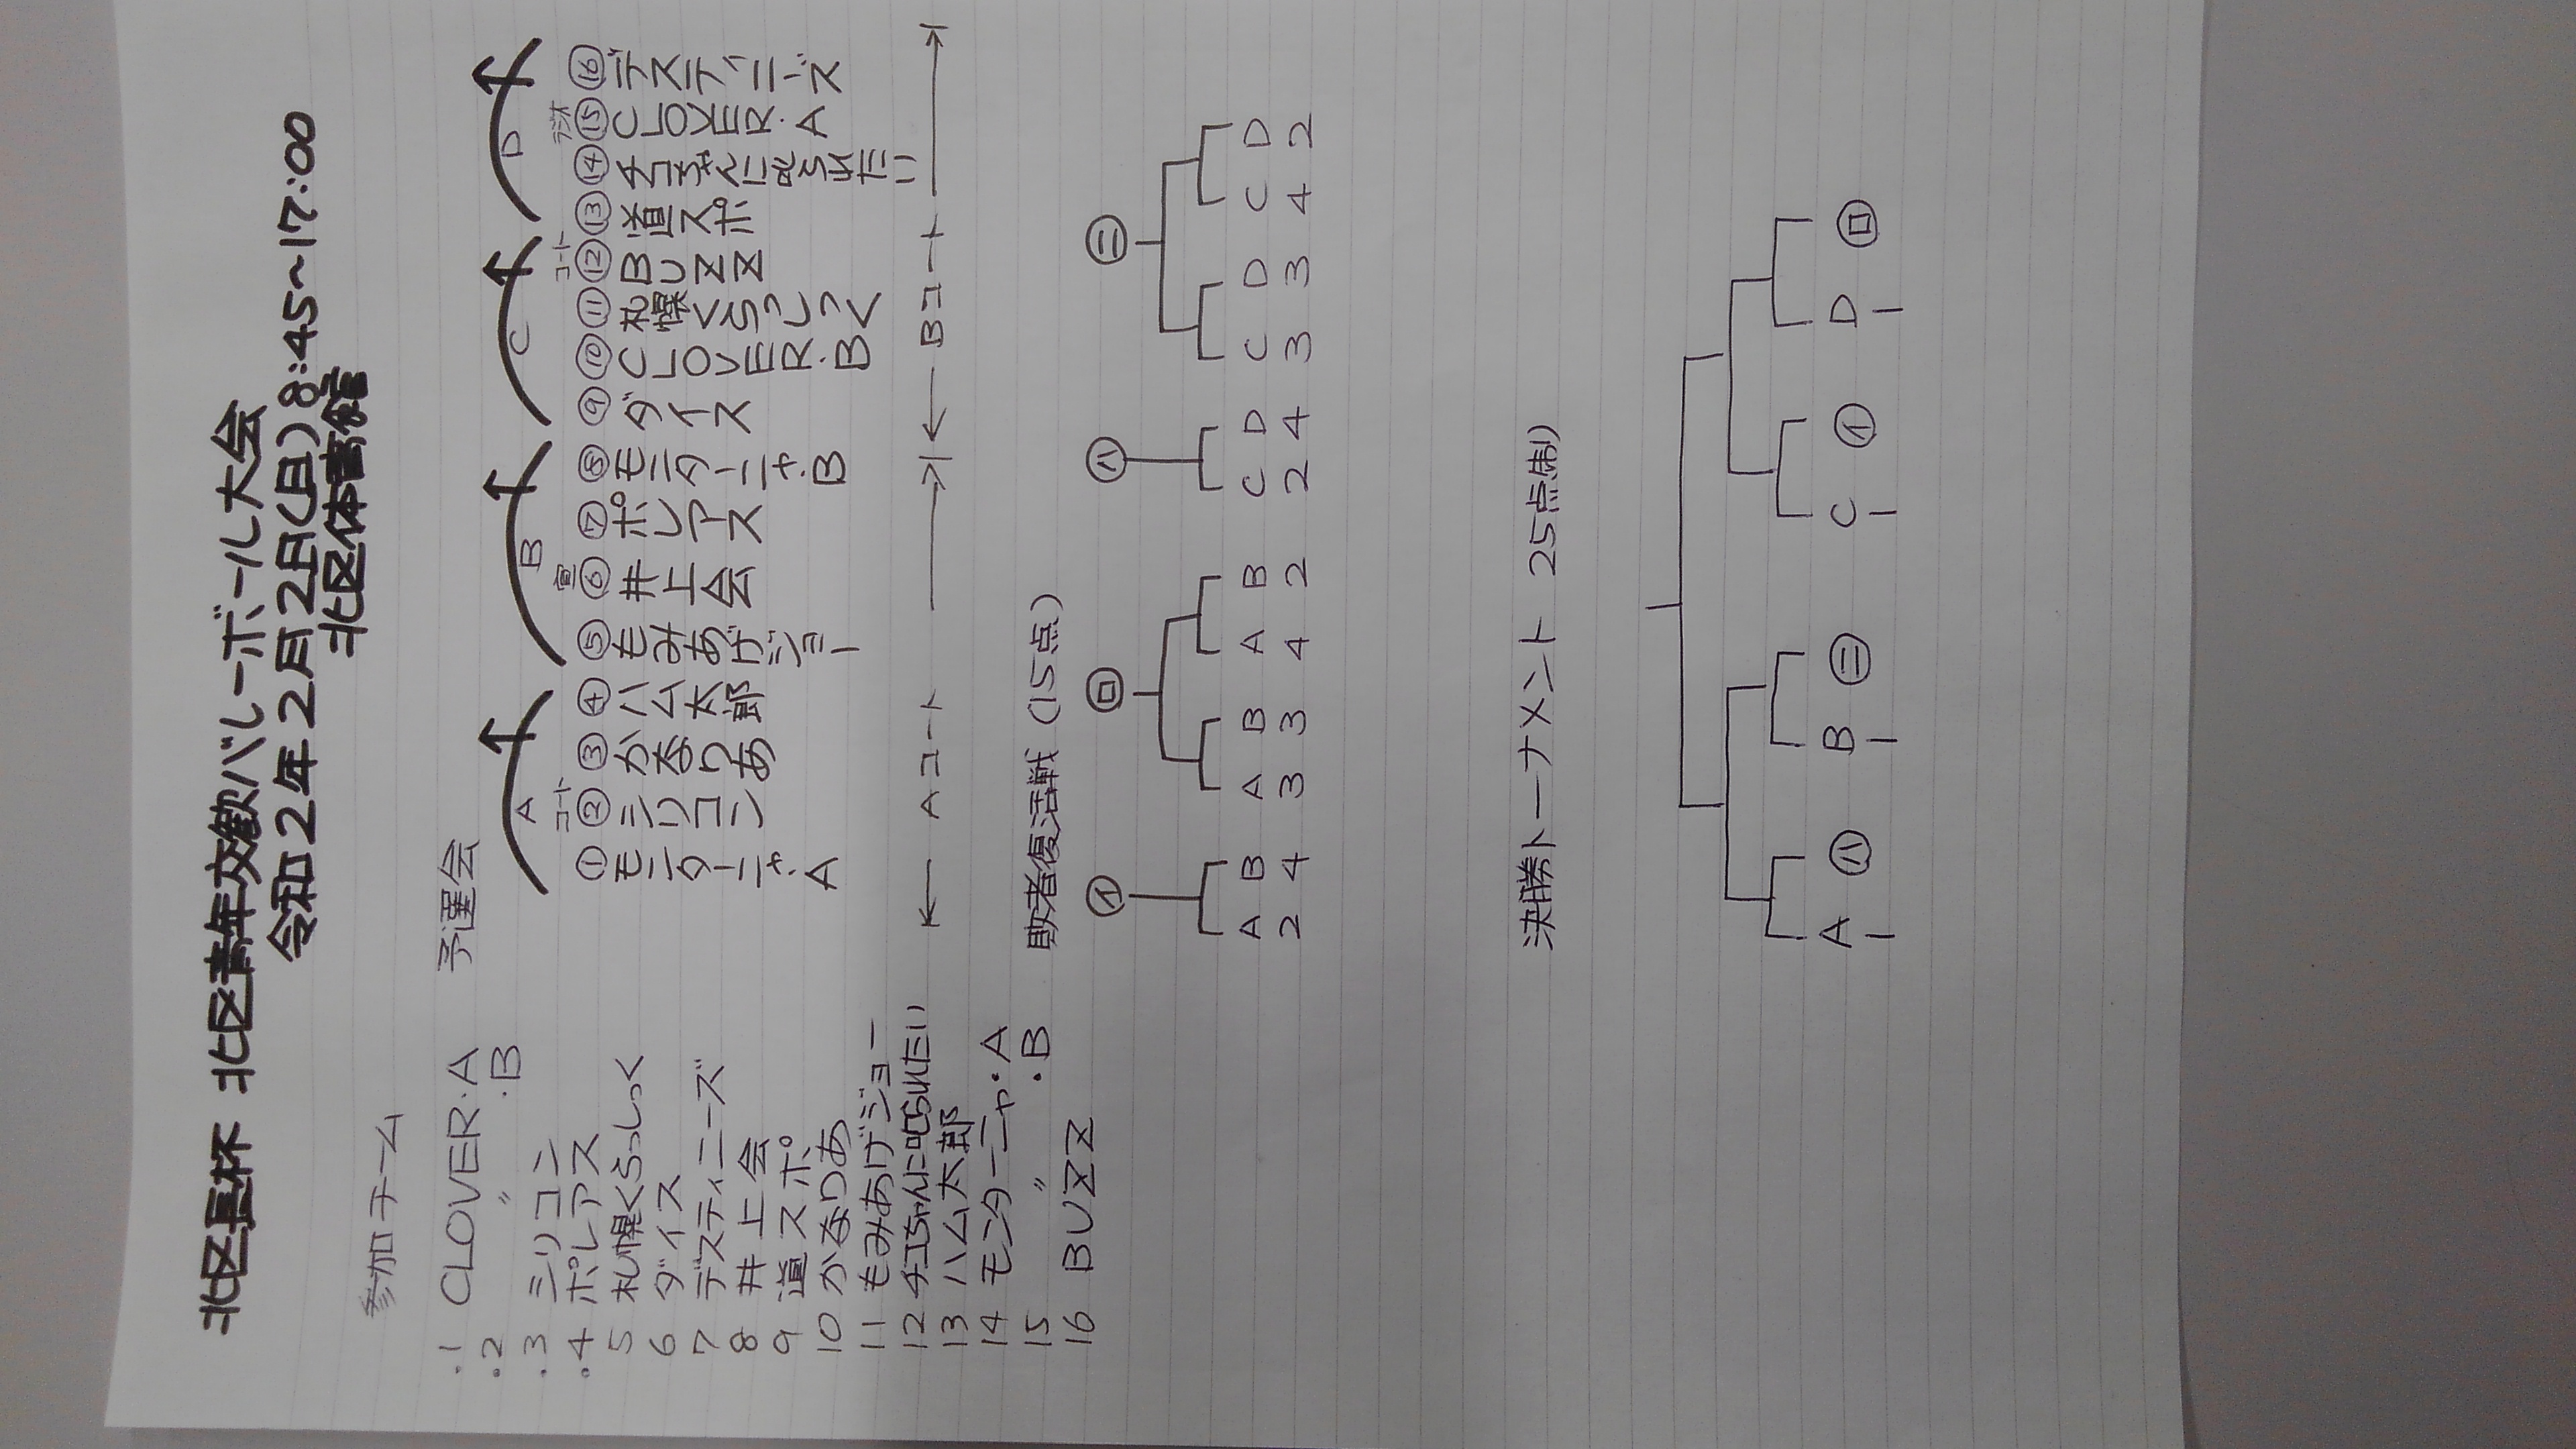 北区長杯 北区青年交歓バレーボール大会
令和2年2月2日(日)8:45~17:00
北区体育館
参加チーム
1 CLOVER・A
2 〃 ・B
3 シリコン
4 ポレアス
5 札幌くらっしっく
6 ダイス
7 デスティニーズ
8 井上会
9 道スポ
10 かなりあ
11 もみあげジョー
12 チコちゃんに叱られたい
13 ハム太郎
14 モンターニャ・A
15 〃 ・B
16 BUZZ
予選会
A B C D
コート 宣 コート ラジオ
① モンターニャ・A
② シリコン
③ かなりあ
④ ハム太郎
⑤ もみあげジョー
⑥ 井上会
⑦ ポレアス
⑧ モンターニャ・B
⑨ ダイス
⑩ CLOVER・B
⑪ 札幌くらっしっく
⑫ BUZZ
⑬ 道スポ
⑭ チコちゃんに叱られたい
⑮ CLOVER・A
⑯ デスティニーズ
← Aコート → ← Bコート →
敗者復活戦 (15点)
イ ロ ハ ニ
A B A B A B C D C D C D
2 4 3 3 4 2 2 4 3 3 4 2
決勝トーナメント 25点制
A ハ B ニ C イ D ロ
1 1 1 1